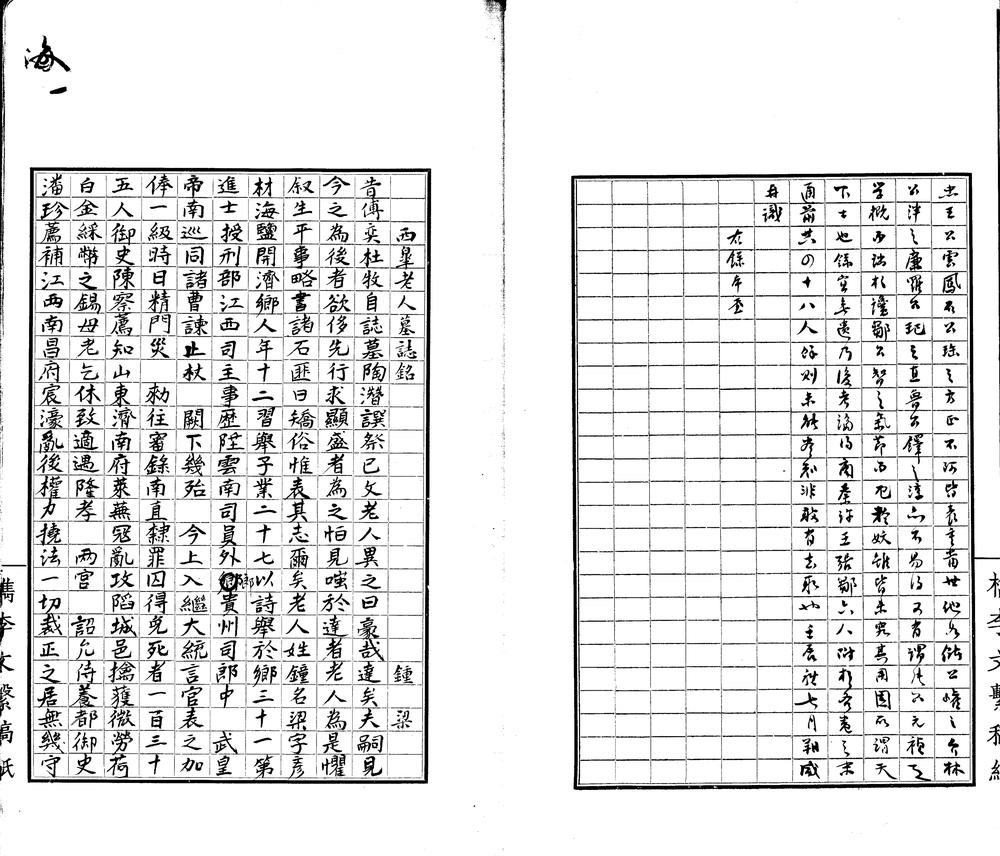 檇李文繫稿紙
忠王公雲鳳石公珤之方正不阿皆表率當世他如儲公巏之介林
公津之廉羅公玘之直魯公鐸之淳亦不易得又有謂公元禎之
學概鄒公智之氣節而厄於皆未究其用固所謂天
下士也餘實無遠乃後考論得商泰許王張鄒六人附於各卷之末
通前共四十八人餘則未能參知非敢有去取也壬辰秋七月朔咸
再識
右餘
海一
西臯老人墓誌銘　鍾梁
昔傅奕杜牧自誌墓陶潛譔祭已文老人異之曰豪哉達矣夫嗣見
今之為後者欲侈先行求顯盛者為之怕見嗤於達者老人為是懼
叙生平事略書諸石匪曰矯俗惟表其志爾矣老人姓鐘名梁字彥
材海鹽開濟鄉人年十二習舉子業二十七以詩舉於鄉三十一第
進士授刑部江西司主事歷陞雲南司員外郎貴州司郎中　武皇
帝南巡同諸曹諫止杖　闕下幾殆　今上入繼大統言官表之加
俸一級時日精門災　勑往審錄南直隸罪囚得免死者一百三十
五人御史陳察薦知山東濟南府萊蕪冦亂攻陷城邑擒獲微勞荷
白金綵幣之錫母老乞休致適遇隆孝　兩宮　詔允侍養都御史
潘珍薦補江西南昌府宸濠亂後權力撓法一切裁正之居無幾守
檇李文繫稿紙